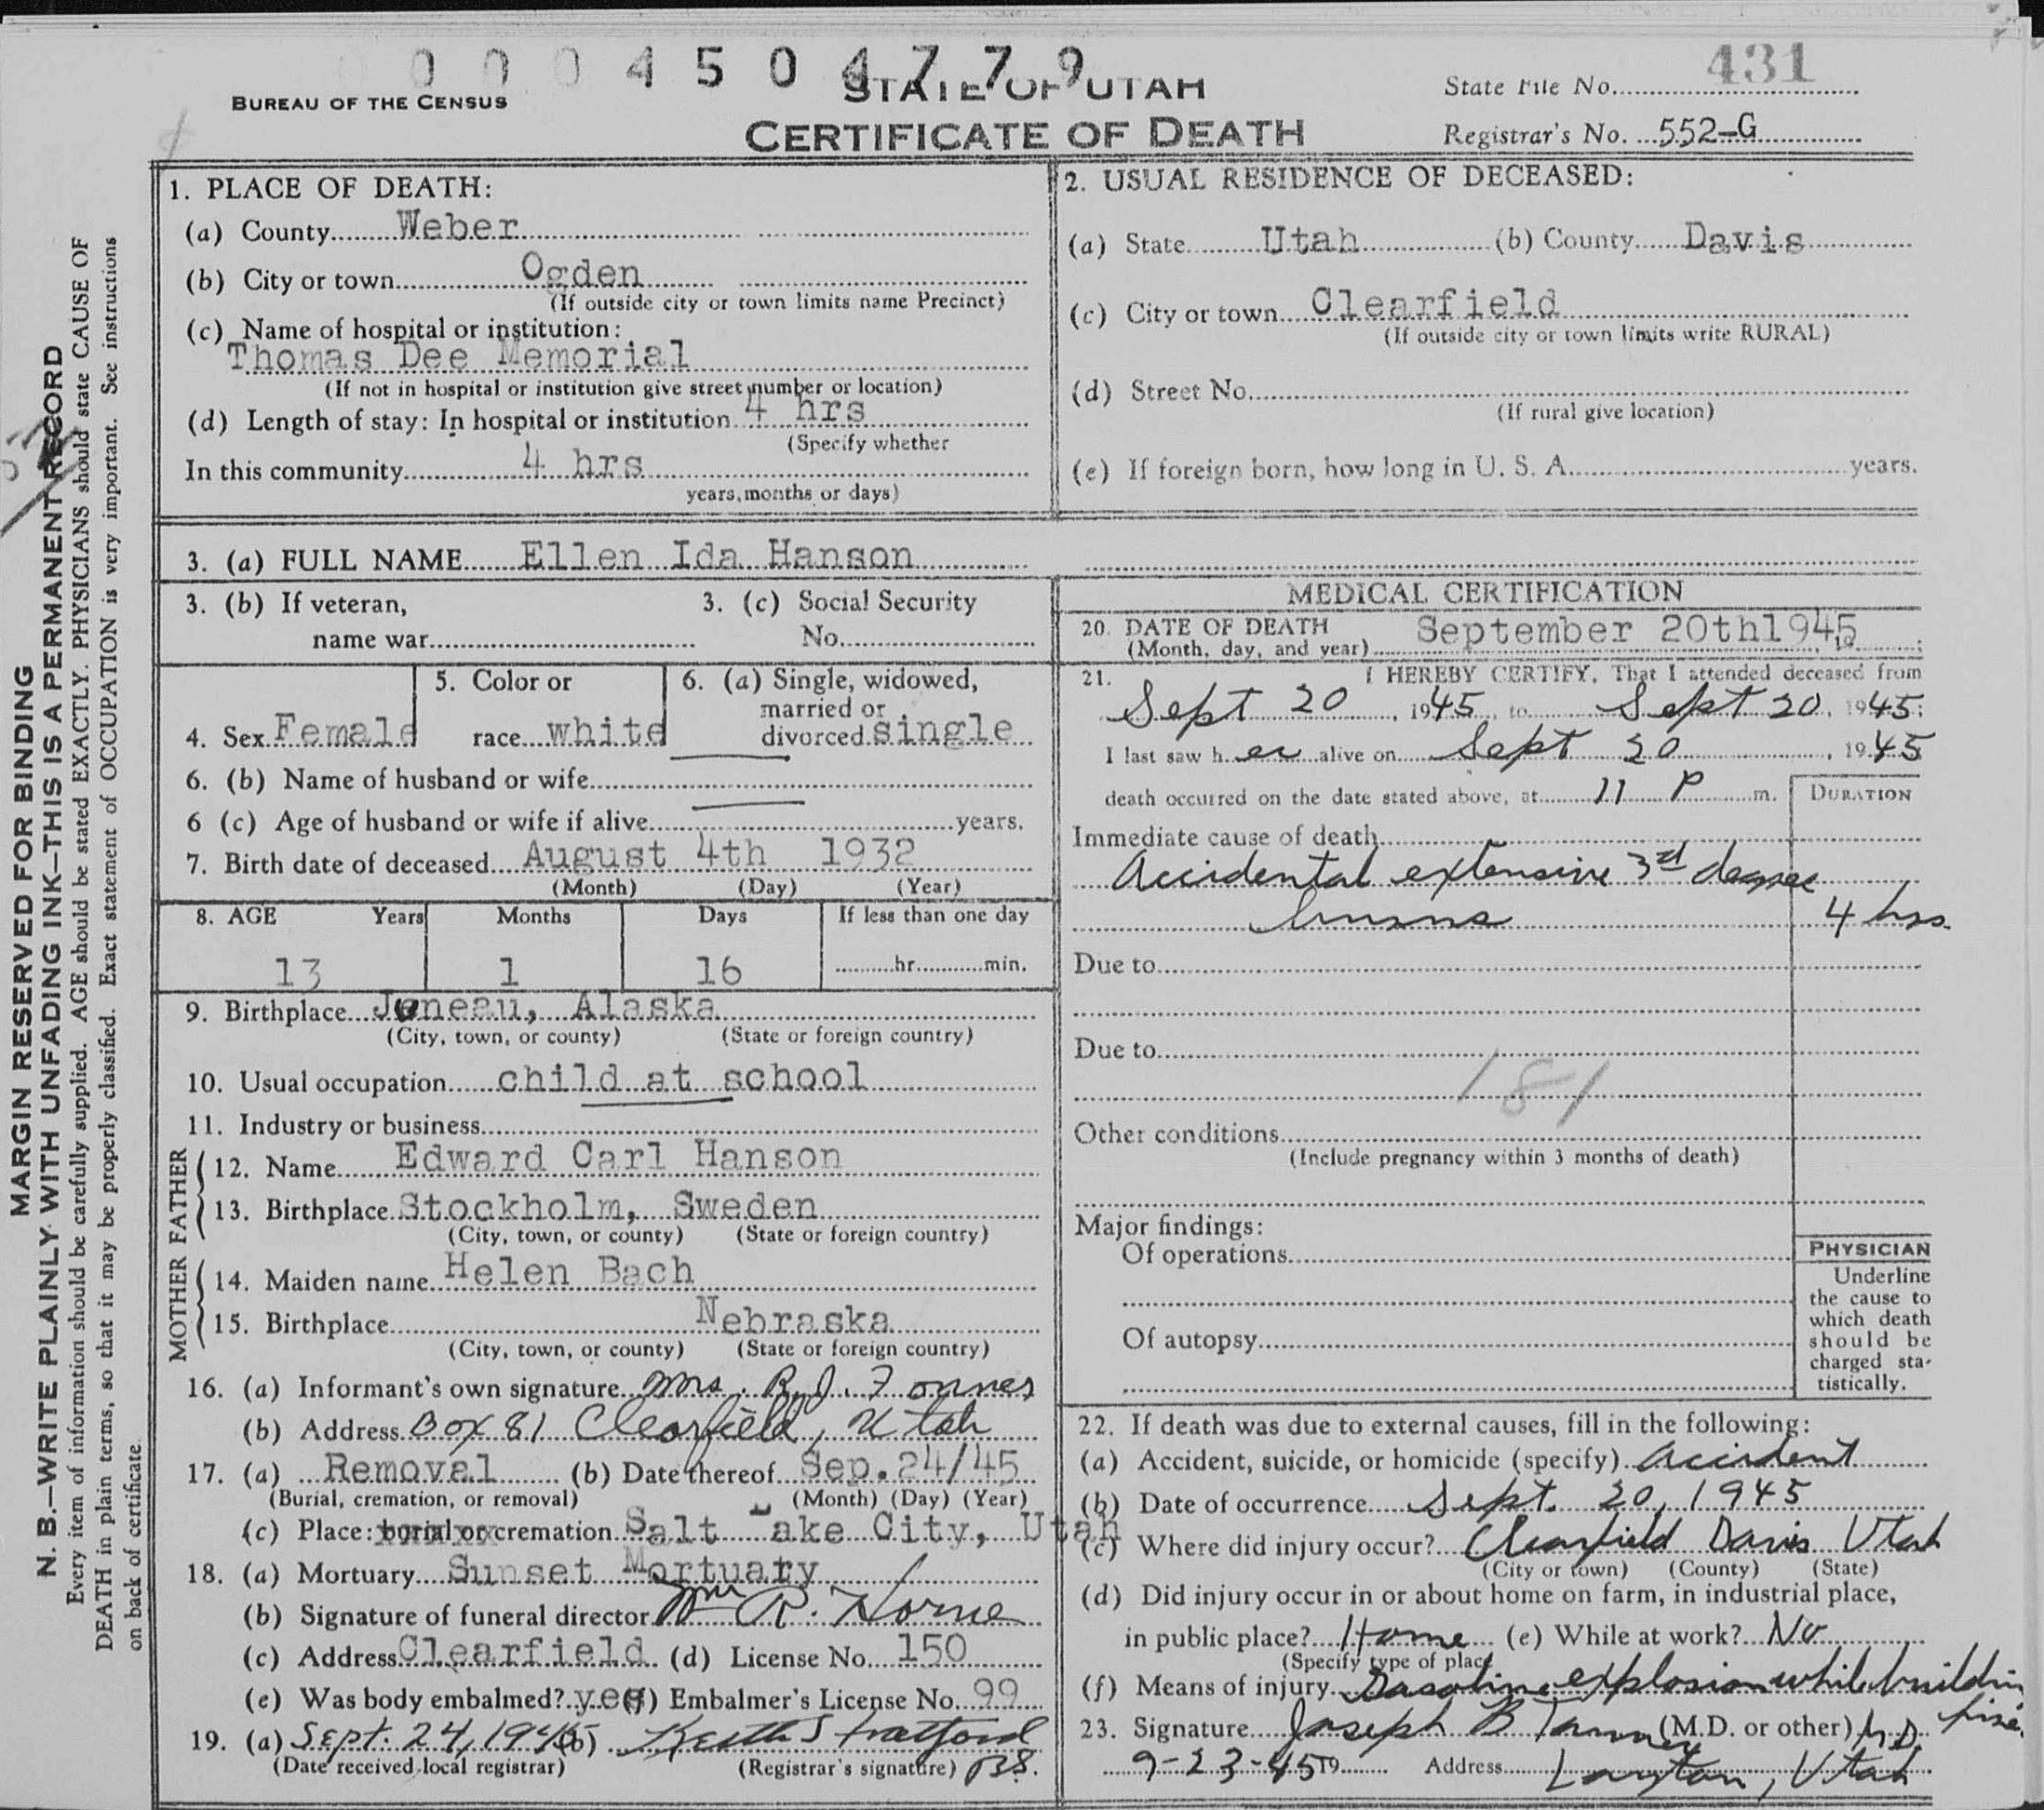 000450 4779
BUREAU OF THE CENSUS
STATE OF UTAH
CERTIFICATE OF DEATH
State File No. 431
Registrar's No. 552-G
MARGIN RESERVED FOR BINDING
N. B.—WRITE PLAINLY WITH UNFADING INK—THIS IS A PERMANENT RECORD
Every item of information should be carefully supplied. AGE should be stated EXACTLY. PHYSICIANS should state CAUSE OF
DEATH in plain terms, so that it may be properly classified. Exact statement of OCCUPATION is very important. See instructions
on back of certificate.
1. PLACE OF DEATH:
(a) County Weber
(b) City or town Ogden
(If outside city or town limits name Precinct)
(c) Name of hospital or institution:
Thomas Dee Memorial
(If not in hospital or institution give street number or location)
(d) Length of stay: In hospital or institution 4 hrs
(Specify whether
In this community 4 hrs
years, months or days)
2. USUAL RESIDENCE OF DECEASED:
(a) State Utah (b) County Davis
(c) City or town Clearfield
(If outside city or town limits write RURAL)
(d) Street No.
(If rural give location)
(e) If foreign born, how long in U. S. A. years.
3. (a) FULL NAME Ellen Ida Hanson
3. (b) If veteran, name war
3. (c) Social Security No.
4. Sex Female
5. Color or race white
6. (a) Single, widowed, married or divorced single
6. (b) Name of husband or wife
6 (c) Age of husband or wife if alive years.
7. Birth date of deceased August 4th 1932
(Month) (Day) (Year)
8. AGE Years Months Days If less than one day
13 1 16 hr. min.
9. Birthplace Juneau, Alaska
(City, town, or county) (State or foreign country)
10. Usual occupation child at school
11. Industry or business
FATHER
12. Name Edward Carl Hanson
13. Birthplace Stockholm, Sweden
(City, town, or county) (State or foreign country)
MOTHER
14. Maiden name Helen Bach
15. Birthplace Nebraska
(City, town, or county) (State or foreign country)
16. (a) Informant's own signature Mrs. R. J.
(b) Address Box 81 Clearfield, Utah
17. (a) Removal (b) Date thereof Sep. 24/45
(Burial, cremation, or removal) (Month) (Day) (Year)
(c) Place: burial or cremation Salt Lake City, Utah
18. (a) Mortuary Sunset Mortuary
(b) Signature of funeral director Wm R. Horne
(c) Address Clearfield (d) License No. 150
(e) Was body embalmed? yes (f) Embalmer's License No. 99
19. (a) Sept. 24, 1945 (b) Keith Stratford
(Date received local registrar) (Registrar's signature) BS.
MEDICAL CERTIFICATION
20. DATE OF DEATH September 20th 1945
(Month, day, and year)
21. I HEREBY CERTIFY, That I attended deceased from
Sept 20, 1945, to Sept 20, 1945;
I last saw her alive on Sept 20, 1945
death occurred on the date stated above, at 11 P m.
DURATION
Immediate cause of death
Accidental extensive 3rd degree
burns 4 hrs.
Due to
Due to
181
Other conditions
(Include pregnancy within 3 months of death)
Major findings:
Of operations
Of autopsy
PHYSICIAN
Underline
the cause to
which death
should be
charged sta-
tistically.
22. If death was due to external causes, fill in the following:
(a) Accident, suicide, or homicide (specify) Accident
(b) Date of occurrence Sept. 20, 1945
(c) Where did injury occur? Clearfield Davis Utah
(City or town) (County) (State)
(d) Did injury occur in or about home on farm, in industrial place,
in public place? Home (e) While at work? No
(Specify type of place)
(f) Means of injury Gasoline explosion while building fire.
23. Signature Joseph B Tanner (M.D. or other) M.D.
9-23-45 19 Address Layton, Utah